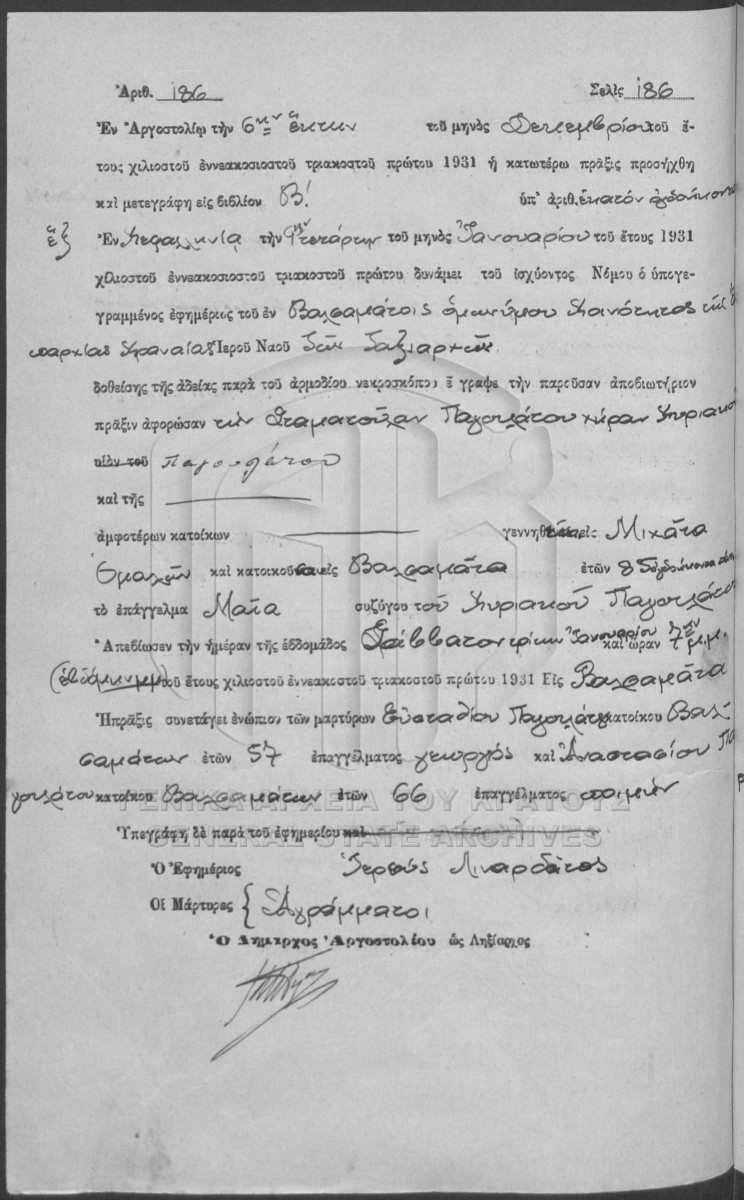 Ἀριθ. 186 Σελὶς 186
Ἐν Ἀργοστολίῳ τὴν 6ην ἕκτην τοῦ μηνὸς Δεκεμβρίου τοῦ ἔ-
τους χιλιοστοῦ ἐννεακοσιοστοῦ τριακοστοῦ πρώτου 1931 ἡ κατωτέρω πρᾶξις προσήχθη
καὶ μετεγράφη εἰς βιβλίον Β! ὑπ' ἀριθ. ἑκατὸν ὀγδοήκοντα
ἕξ Ἐν Κεφαλληνίᾳ τὴν τετάρτην τοῦ μηνὸς Ἰανουαρίου τοῦ ἔτους 1931
χιλιοστοῦ ἐννεακοσιοστοῦ τριακοστοῦ πρώτου δυνάμει τοῦ ἰσχύοντος Νόμου ὁ ὑπογε-
γραμμένος ἐφημέριος τοῦ ἐν Βαλσαμάτοις ὁμωνύμου Κοινότητος τῆς ἐ
παρχίας Κραναίας Ἱεροῦ Ναοῦ Τῶν Ταξιαρχῶν.
δοθείσης τῆς ἀδείας παρὰ τοῦ ἁρμοδίου νεκροσκόπου ἔγραψε τὴν παροῦσαν ἀποβιωτήριον
πρᾶξιν ἀφορῶσαν τὴν Σταματούλαν Παγουλάτου χήραν Κυριακοῦ
υἱὸν τοῦ Παγουλάτου
καὶ τῆς
ἀμφοτέρων κατοίκων γεννηθεῖσα εἰς Μιχάτα
Ὁμαλῶν καὶ κατοικοῦσα εἰς Βαλσαμάτα ἐτῶν 85 ὀγδοήκοντα πέντε
τὸ ἐπάγγελμα Μαῖα συζύγου τοῦ Κυριακοῦ Παγουλάτου
Ἀπεβίωσεν τὴν ἡμέραν τῆς ἑβδομάδος Σάββατον τρίτην Ἰανουαρίου καὶ ὥραν 7ην μ.μ.
(ἑβδόμην μμ) τοῦ ἔτους χιλιοστοῦ ἐννεακοστοῦ τριακοστοῦ πρώτου 1931 Εἰς Βαλσαμάτα
Ἡ πρᾶξις συνετάγει ἐνώπιον τῶν μαρτύρων Εὐσταθίου Παγουλάτου κατοίκου Βαλ
σαμάτων ἐτῶν 57 ἐπαγγέλματος γεωργός καὶ Ἀναστασίου Πα
γουλάτου κατοίκου Βαλσαμάτων ἐτῶν 66 ἐπαγγέλματος ποιμήν
Ὑπεγράφη δὲ παρὰ τοῦ ἐφημερίου καὶ
ΓΕΝΙΚΑ ΑΡΧΕΙΑ ΤΟΥ ΚΡΑΤΟΥΣ
GENERAL STATE ARCHIVES
Ὁ Ἐφημέριος Ἱερεὺς Λιναρδάτος
Οἱ Μάρτυρες { Ἀγράμματοι
Ὁ Δήμαρχος Ἀργοστολίου ὡς Ληξίαρχος